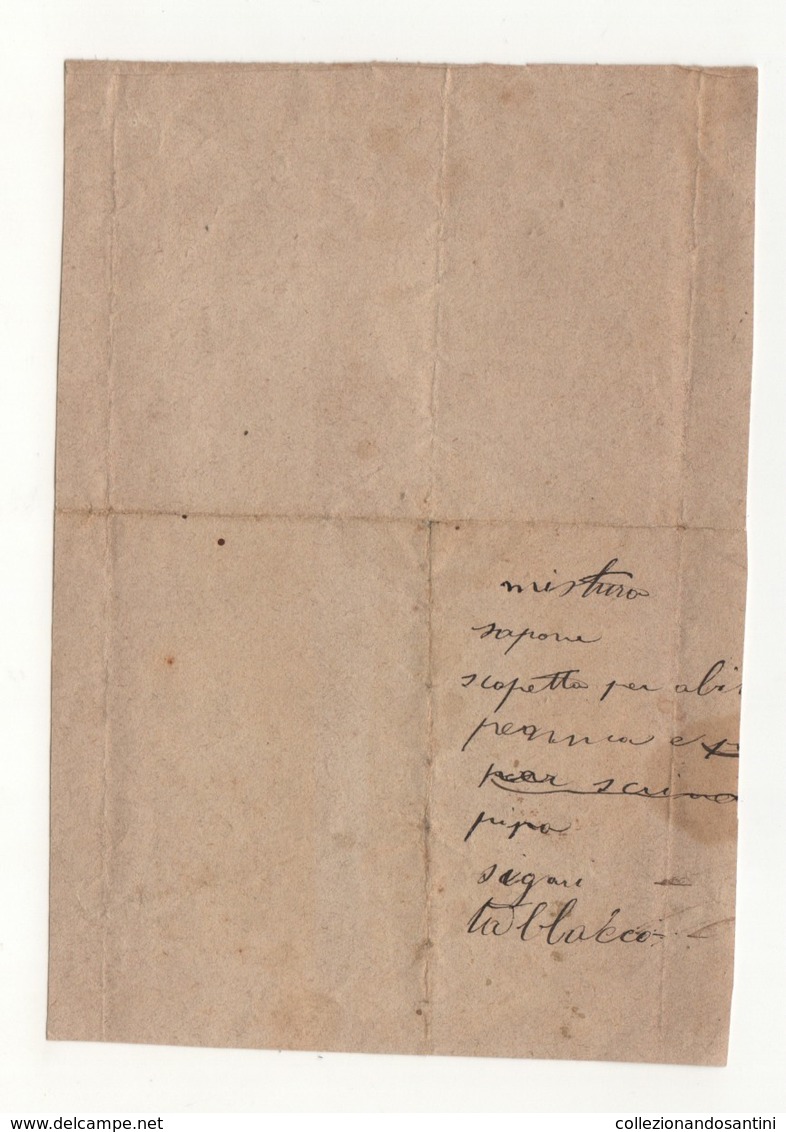 mistura
sapone
scopetta per abi
pennna e
per scriva
pipa
sigari
tabbacco
www.delcampe.net
collezionandosantini